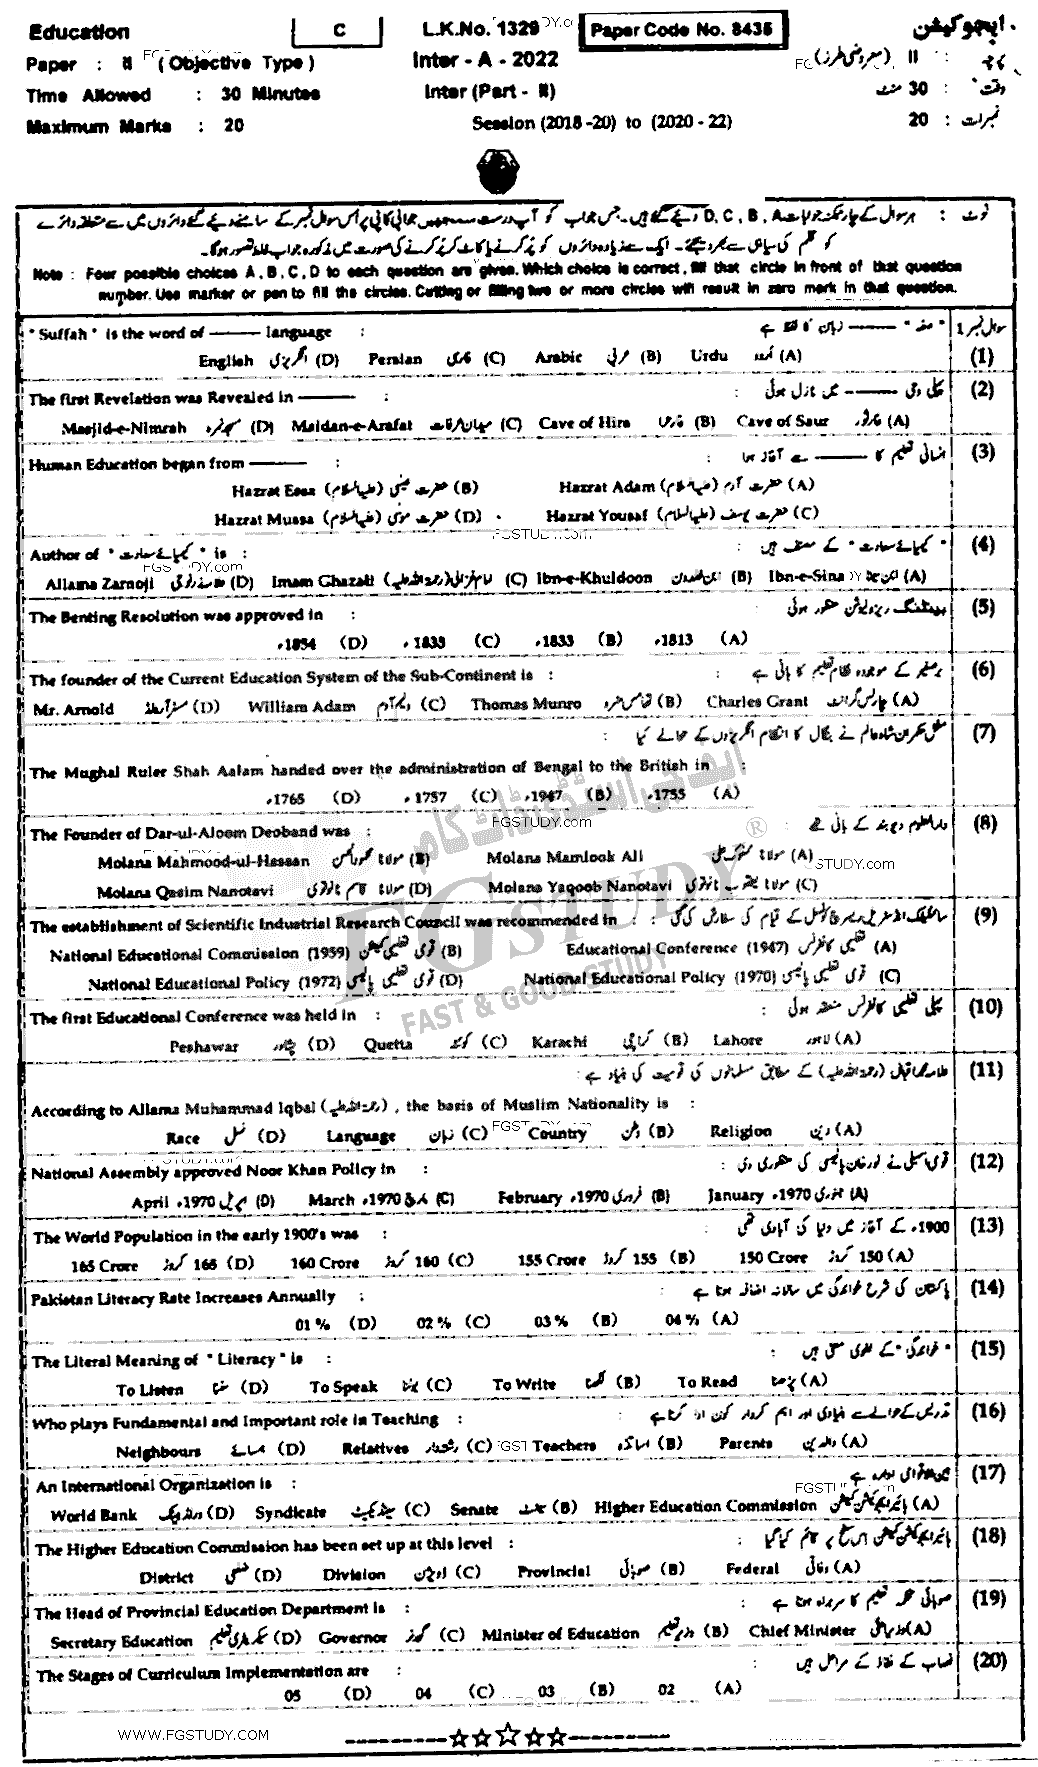 Education C L.K.No. 1329 Paper Code No. 8435 ایجوکیشن
Paper : II (Objective Type) Inter - A - 2022 پرچہ : II (معروضی طرز)
Time Allowed : 30 Minutes Inter (Part - II) وقت : 30 منٹ
Maximum Marks : 20 Session (2018 -20) to (2020 - 22) نمبرات : 20
نوٹ : ہر سوال کے چار ممکنہ جوابات D, C, B, A دیئے گئے ہیں۔ جس جواب کو آپ درست سمجھیں جوابی کاپی پر اُس سوال نمبر کے سامنے دیئے گئے دائروں میں سے متعلقہ دائرے
کو قلم کی سیاہی سے بھر دیجئے۔ ایک سے زیادہ دائروں کو پُر کرنے یا کاٹ کر پُر کرنے کی صورت میں مذکورہ جواب غلط تصور ہوگا۔
Note : Four possible choices A , B , C , D to each question are given. Which choice is correct , fill that circle in front of that question
number. Use marker or pen to fill the circles. Cutting or filling two or more circles will result in zero mark in that question.
سوال نمبر 1
"صفہ" ——— زبان کا لفظ ہے :
"Suffah" is the word of ——— language (1)
English انگریزی (D) Persian فارسی (C) Arabic عربی (B) Urdu اُردو (A)
پہلی وحی ——— میں نازل ہوئی : (2)
The first Revelation was Revealed in ——— :
Masjid-e-Nimrah مسجد نمرہ (D) Maidan-e-Arafat میدان عرفات (C) Cave of Hira غار حرا (B) Cave of Saur غار ثور (A)
انسانی تعلیم کا ——— سے آغاز ہوا : (3)
Human Education began from ——— :
Hazrat Essa حضرت عیسیٰ (علیہ السلام) (B) Hazrat Adam حضرت آدم (علیہ السلام) (A)
Hazrat Mussa حضرت موسیٰ (علیہ السلام) (D) Hazrat Yousaf حضرت یوسف (علیہ السلام) (C)
FGSTUDY.com
"کیمیائے سعادت" کے مصنف ہیں : (4)
Author of "کیمیائے سعادت" is :
Allama Zarnoji علامہ زرنوجی (D) Imam Ghazali امام غزالی (رحمۃ اللہ علیہ) (C) Ibn-e-Khuldoon ابن خلدون (B) Ibn-e-Sina ابن سینا (A)
بینٹنگ ریزولیوشن منظور ہوئی : (5)
The Benting Resolution was approved in :
1854ء (D) 1833ء (C) 1833ء (B) 1813ء (A)
برصغیر کے موجودہ نظام تعلیم کا بانی ہے : (6)
The founder of the Current Education System of the Sub-Continent is :
Mr. Arnold مسٹر آرنلڈ (D) William Adam ولیم آدم (C) Thomas Munro تھامس منرو (B) Charles Grant چارلس گرانٹ (A)
مغل حکمران شاہ عالم نے بنگال کا انتظام انگریزوں کے حوالے کیا : (7)
The Mughal Ruler Shah Aalam handed over the administration of Bengal to the British in :
1765ء (D) 1757ء (C) 1947ء (B) 1755ء (A)
FGSTUDY.com
دارالعلوم دیوبند کے بانی تھے : (8)
The Founder of Dar-ul-Aloom Deoband was :
Molana Mahmood-ul-Hassan مولانا محمود الحسن (B) Molana Mamlook Ali مولانا مملوک علی (A)
Molana Qasim Nanotavi مولانا قاسم نانوتوی (D) Molana Yaqoob Nanotavi مولانا یعقوب نانوتوی (C)
سائنٹیفک انڈسٹریل ریسرچ کونسل کے قیام کی سفارش کی گئی : (9)
The establishment of Scientific Industrial Research Council was recommended in :
National Educational Commission (1959) قومی تعلیمی کمیشن (B) Educational Conference (1947) تعلیمی کانفرنس (A)
National Educational Policy (1972) قومی تعلیمی پالیسی (D) National Educational Policy (1970) قومی تعلیمی پالیسی (C)
پہلی تعلیمی کانفرنس منعقد ہوئی : (10)
The first Educational Conference was held in :
Peshawar پشاور (D) Quetta کوئٹہ (C) Karachi کراچی (B) Lahore لاہور (A)
علامہ محمد اقبال (رحمۃ اللہ علیہ) کے مطابق مسلمانوں کی قومیت کی بنیاد ہے : (11)
According to Allama Muhammad Iqbal (رحمۃ اللہ علیہ) , the basis of Muslim Nationality is :
Race نسل (D) Language زبان (C) Country وطن (B) Religion دین (A)
قومی اسمبلی نے نور خان پالیسی کی منظوری دی : (12)
National Assembly approved Noor Khan Policy in :
April 1970ء اپریل (D) March 1970ء مارچ (C) February 1970ء فروری (B) January 1970ء جنوری (A)
1900ء کے آغاز میں دنیا کی آبادی تھی : (13)
The World Population in the early 1900's was :
165 Crore 165 کروڑ (D) 160 Crore 160 کروڑ (C) 155 Crore 155 کروڑ (B) 150 Crore 150 کروڑ (A)
پاکستان کی شرح خواندگی میں سالانہ اضافہ ہوتا ہے : (14)
Pakistan Literacy Rate Increases Annually :
01 % (D) 02 % (C) 03 % (B) 04 % (A)
"خواندگی" کے لغوی معنی ہیں : (15)
The Literal Meaning of "Literacy" is :
To Listen سننا (D) To Speak بولنا (C) To Write لکھنا (B) To Read پڑھنا (A)
تدریس کے حوالے سے بنیادی اور اہم کردار کون ادا کرتا ہے : (16)
Who plays Fundamental and Important role in Teaching :
Neighbours ہمسائے (D) Relatives رشتہ دار (C) Teachers اساتذہ (B) Parents والدین (A)
بین الاقوامی ادارہ ہے : (17)
An International Organization is :
World Bank ورلڈ بینک (D) Syndicate سینڈیکیٹ (C) Senate سینٹ (B) Higher Education Commission ہائیر ایجوکیشن کمیشن (A)
ہائیر ایجوکیشن کمیشن اس سطح پر قائم کیا گیا : (18)
The Higher Education Commission has been set up at this level :
District ضلعی (D) Division ڈویژن (C) Provincial صوبائی (B) Federal وفاقی (A)
صوبائی محکمہ تعلیم کا سربراہ ہوتا ہے : (19)
The Head of Provincial Education Department is :
Secretary Education سیکرٹری تعلیم (D) Governor گورنر (C) Minister of Education وزیر تعلیم (B) Chief Minister وزیر اعلیٰ (A)
نصاب کے نفاذ کے مراحل ہیں : (20)
The Stages of Curriculum Implementation are :
05 (D) 04 (C) 03 (B) 02 (A)
WWW.FGSTUDY.COM
ایف جی اسٹڈی ڈاٹ کام
FGSTUDY ®
FAST & GOOD STUDY